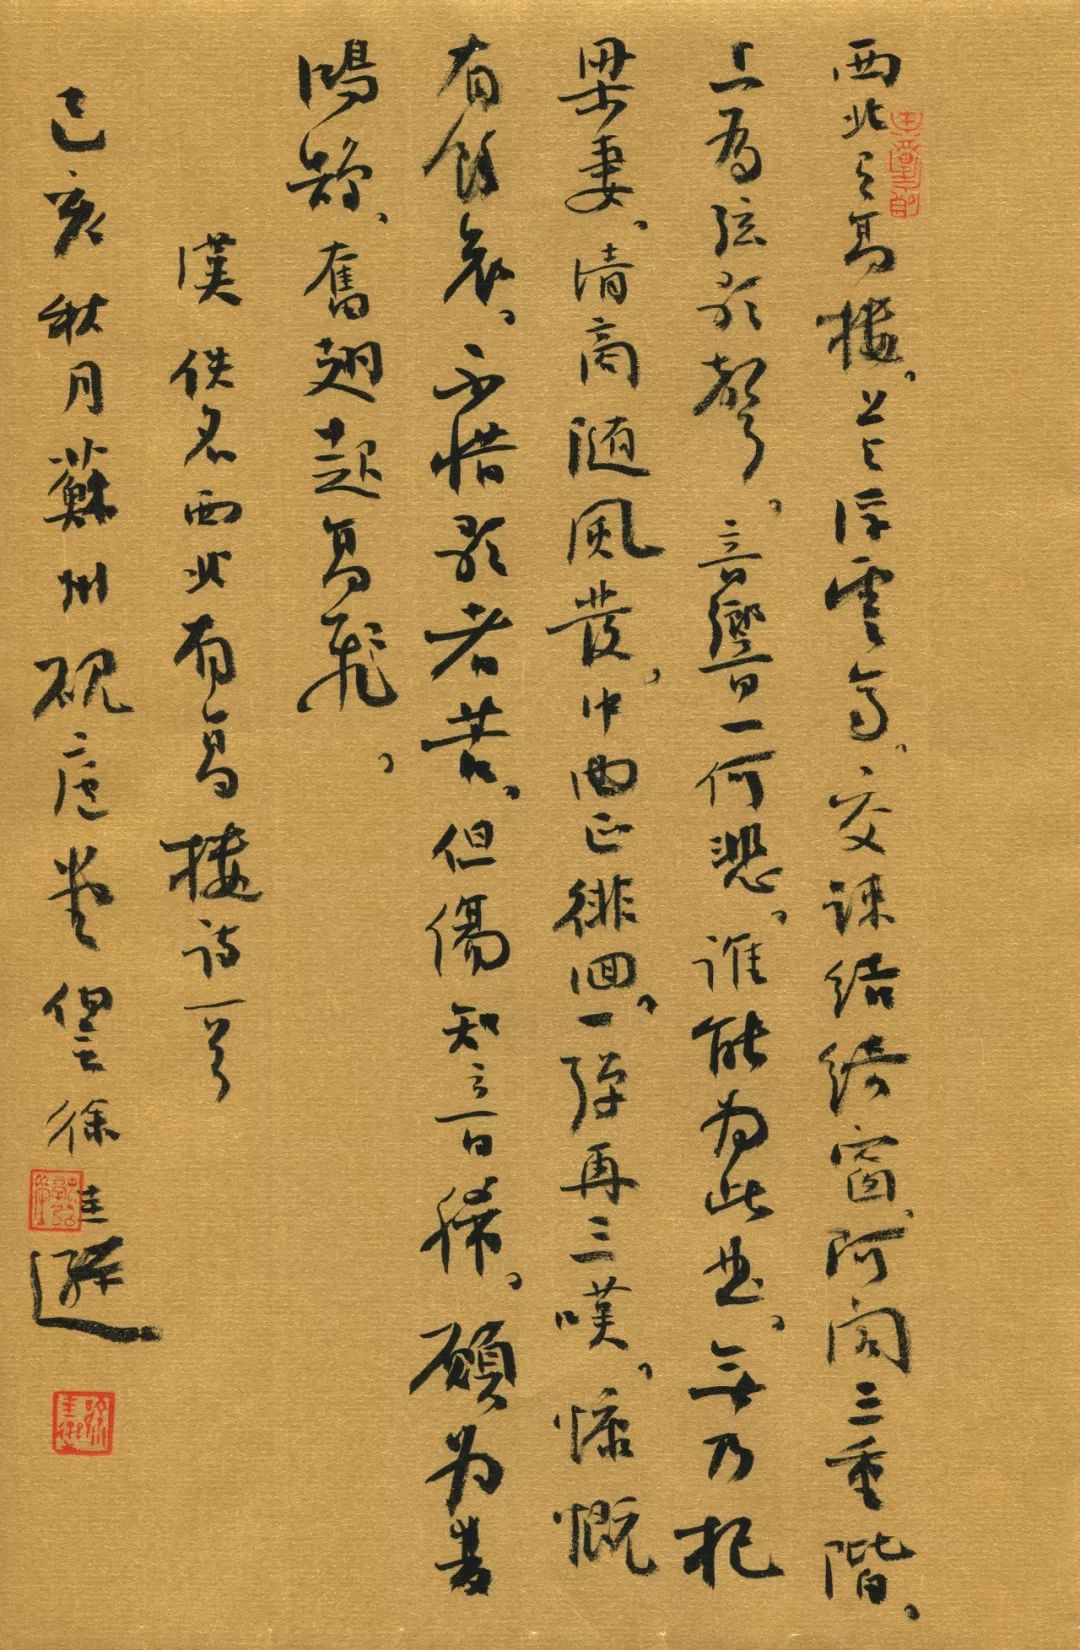 西北有高樓、上与浮雲齊、交疎結綺窗、阿閣三重階、
上有弦歌聲、音響一何悲、誰能为此曲、無乃杞
梁妻、清商隨風發、中曲正徘徊、一彈再三嘆、慷慨
有餘哀、不惜歌者苦、但傷知音稀、願为雙
鴻鵠、奮翅起高飛、
漢佚名西北有高樓詩一首
己亥秋月蘇州硯廬徐圭